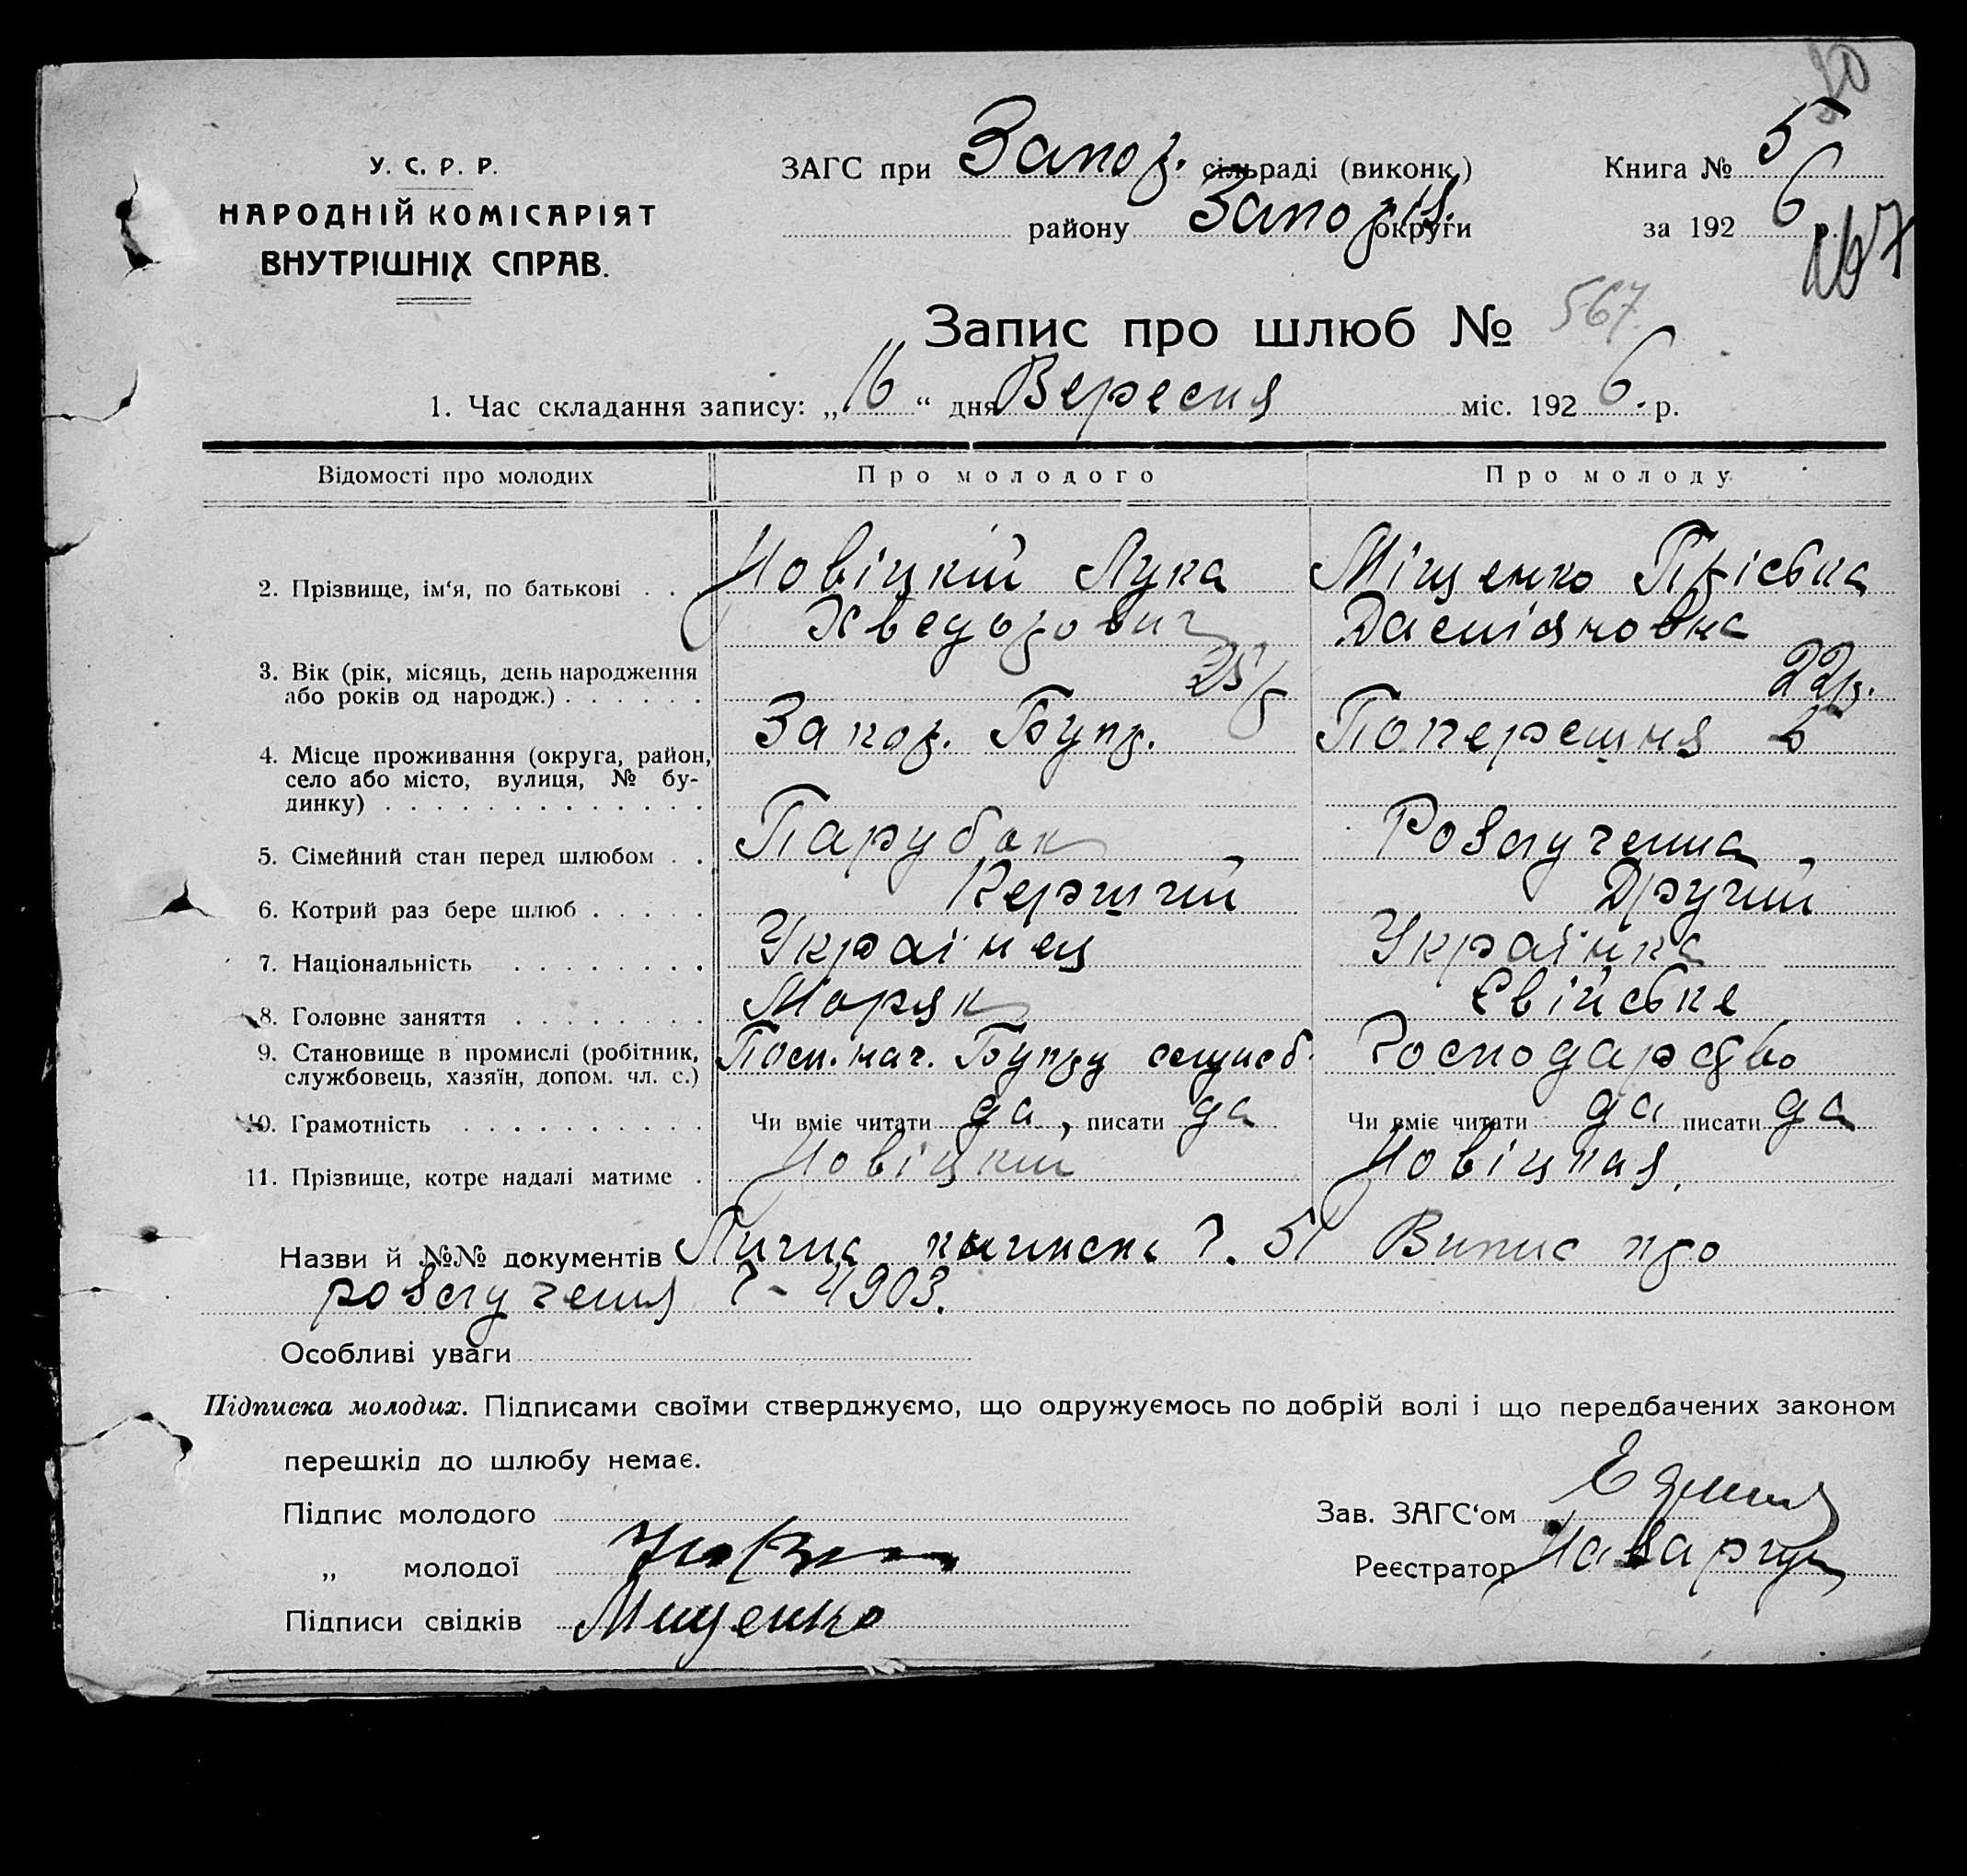 20
У. С. Р. Р.
НАРОДНІЙ КОМІСАРІЯТ
ВНУТРІШНІХ СПРАВ.
ЗАГС при Запор. сільраді (виконк.)
району Запоріз. округи
Книга № 5
за 1926 р.
167
Запис про шлюб № 567
1. Час складання запису: „16“ дня Вересня міс. 1926 р.
Відомості про молодих Про молодого Про молоду
2. Прізвище, ім‘я, по батькові Новіцкій Лука Хведорович Міщенко Пріська Даміяновна
3. Вік (рік, місяць, день народження або років од народж.) 25 р 22 р.
4. Місце проживання (округа, район, село або місто, вулиця, № будинку) Запор. Бупр. Поперешня 6
5. Сімейний стан перед шлюбом Парубок Розлучена
6. Котрий раз бере шлюб Перший Другий
7. Національність Українец Українка
8. Головне заняття Моряк Свійське
9. Становище в промислі (робітник, службовець, хазяїн, допом. чл. с.) Пом. нач. Бупру Господарство
10. Грамотність Чи вміє читати да, писати да Чи вміє читати да писати да
11. Прізвище, котре надалі матиме Новіцкий Новіцкая,
Назви й №№ документів Лична книжка Ч. 51 Випис про
розлученя Ч- 4903.
Особливі уваги
Підписка молодих. Підписами своїми стверджуємо, що одружуємось по добрій волі і що передбачених законом
перешкід до шлюбу немає.
Підпис молодого
„ молодої
Підписи свідків Мищенко
Зав. ЗАГС‘ом
Реєстратор